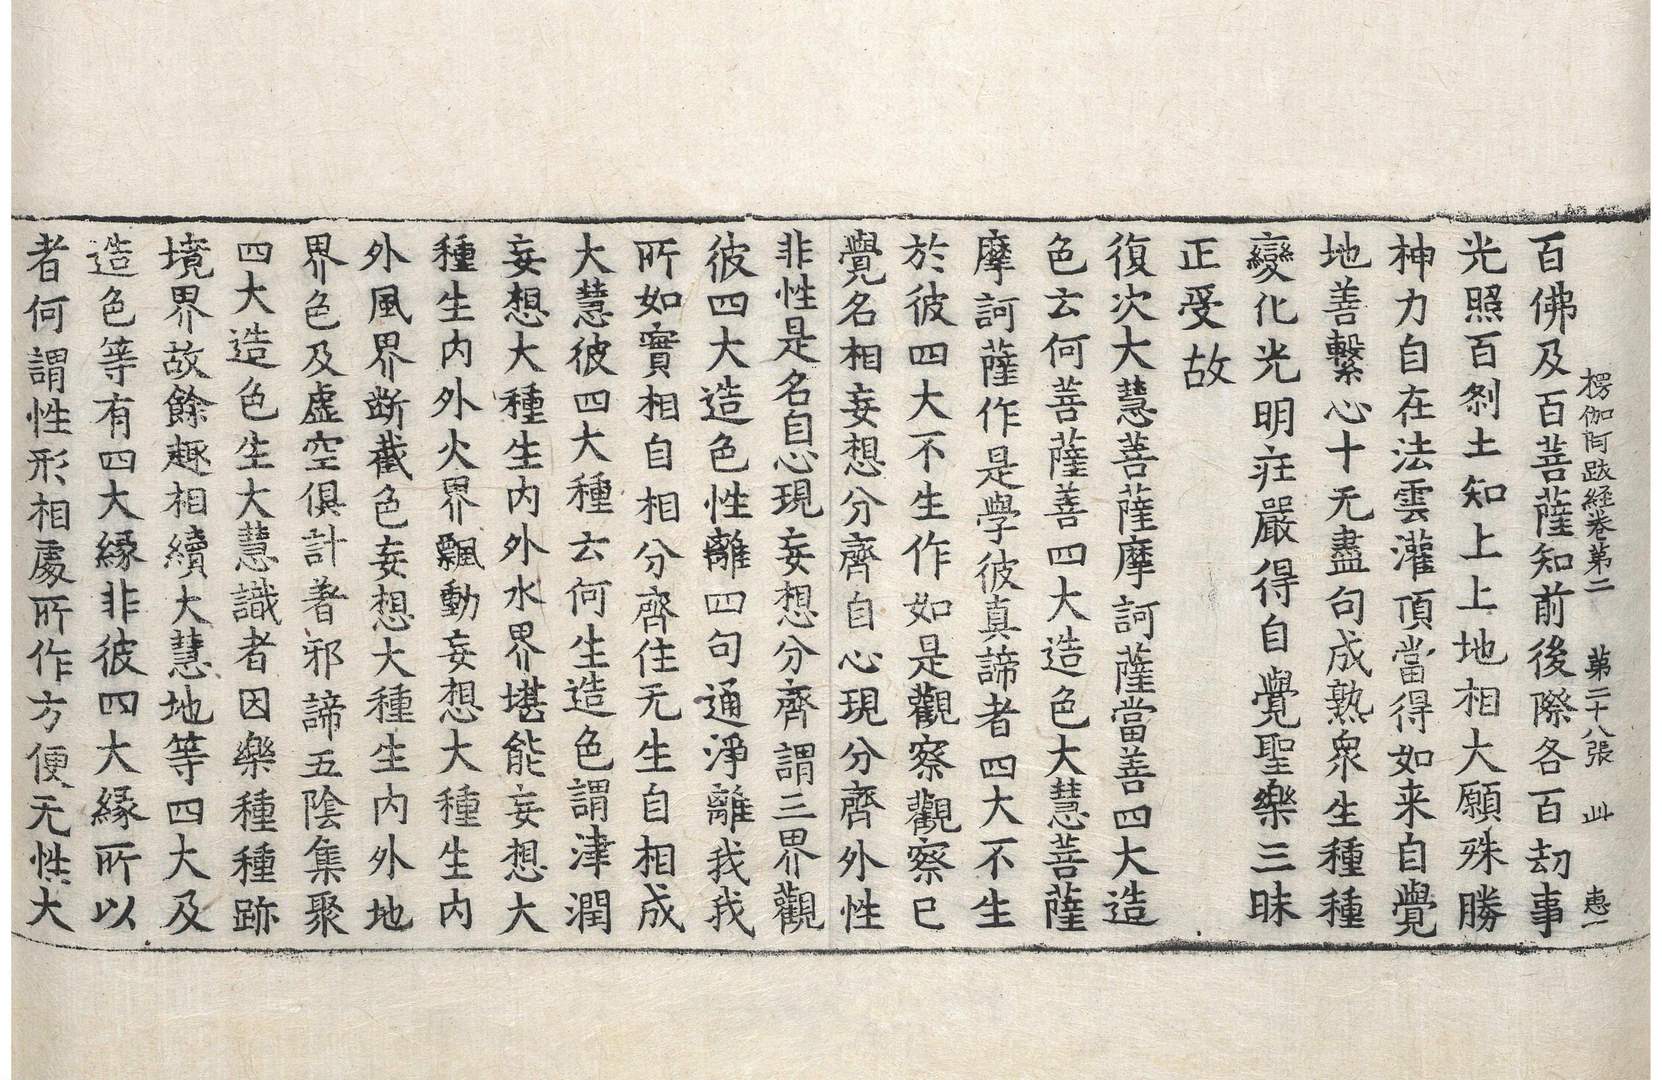 楞伽阿跋経卷第二 第二十八張 此 惠一
百佛及百菩薩知前後際各百劫事
光照百刹土知上上地相大願殊勝
神力自在法雲灌頂當得如来自覺
地善繫心十无盡句成熟衆生種種
變化光明莊嚴得自覺聖樂三昧
正受故
復次大慧菩薩摩訶薩當善四大造
色云何菩薩善四大造色大慧菩薩
摩訶薩作是學彼真諦者四大不生
於彼四大不生作如是觀察觀察已
覺名相妄想分齊自心現分齊外性
非性是名自心現妄想分齊謂三界觀
彼四大造色性離四句通淨離我我
所如實相自相分齊住无生自相成
大慧彼四大種云何生造色謂津潤
妄想大種生内外水界堪能妄想大
種生内外火界飄動妄想大種生内
外風界断截色妄想大種生内外地
界色及虛空俱計著邪諦五陰集聚
四大造色生大慧識者因樂種種跡
境界故餘趣相續大慧地等四大及
造色等有四大縁非彼四大縁所以
者何謂性形相處所作方便无性大